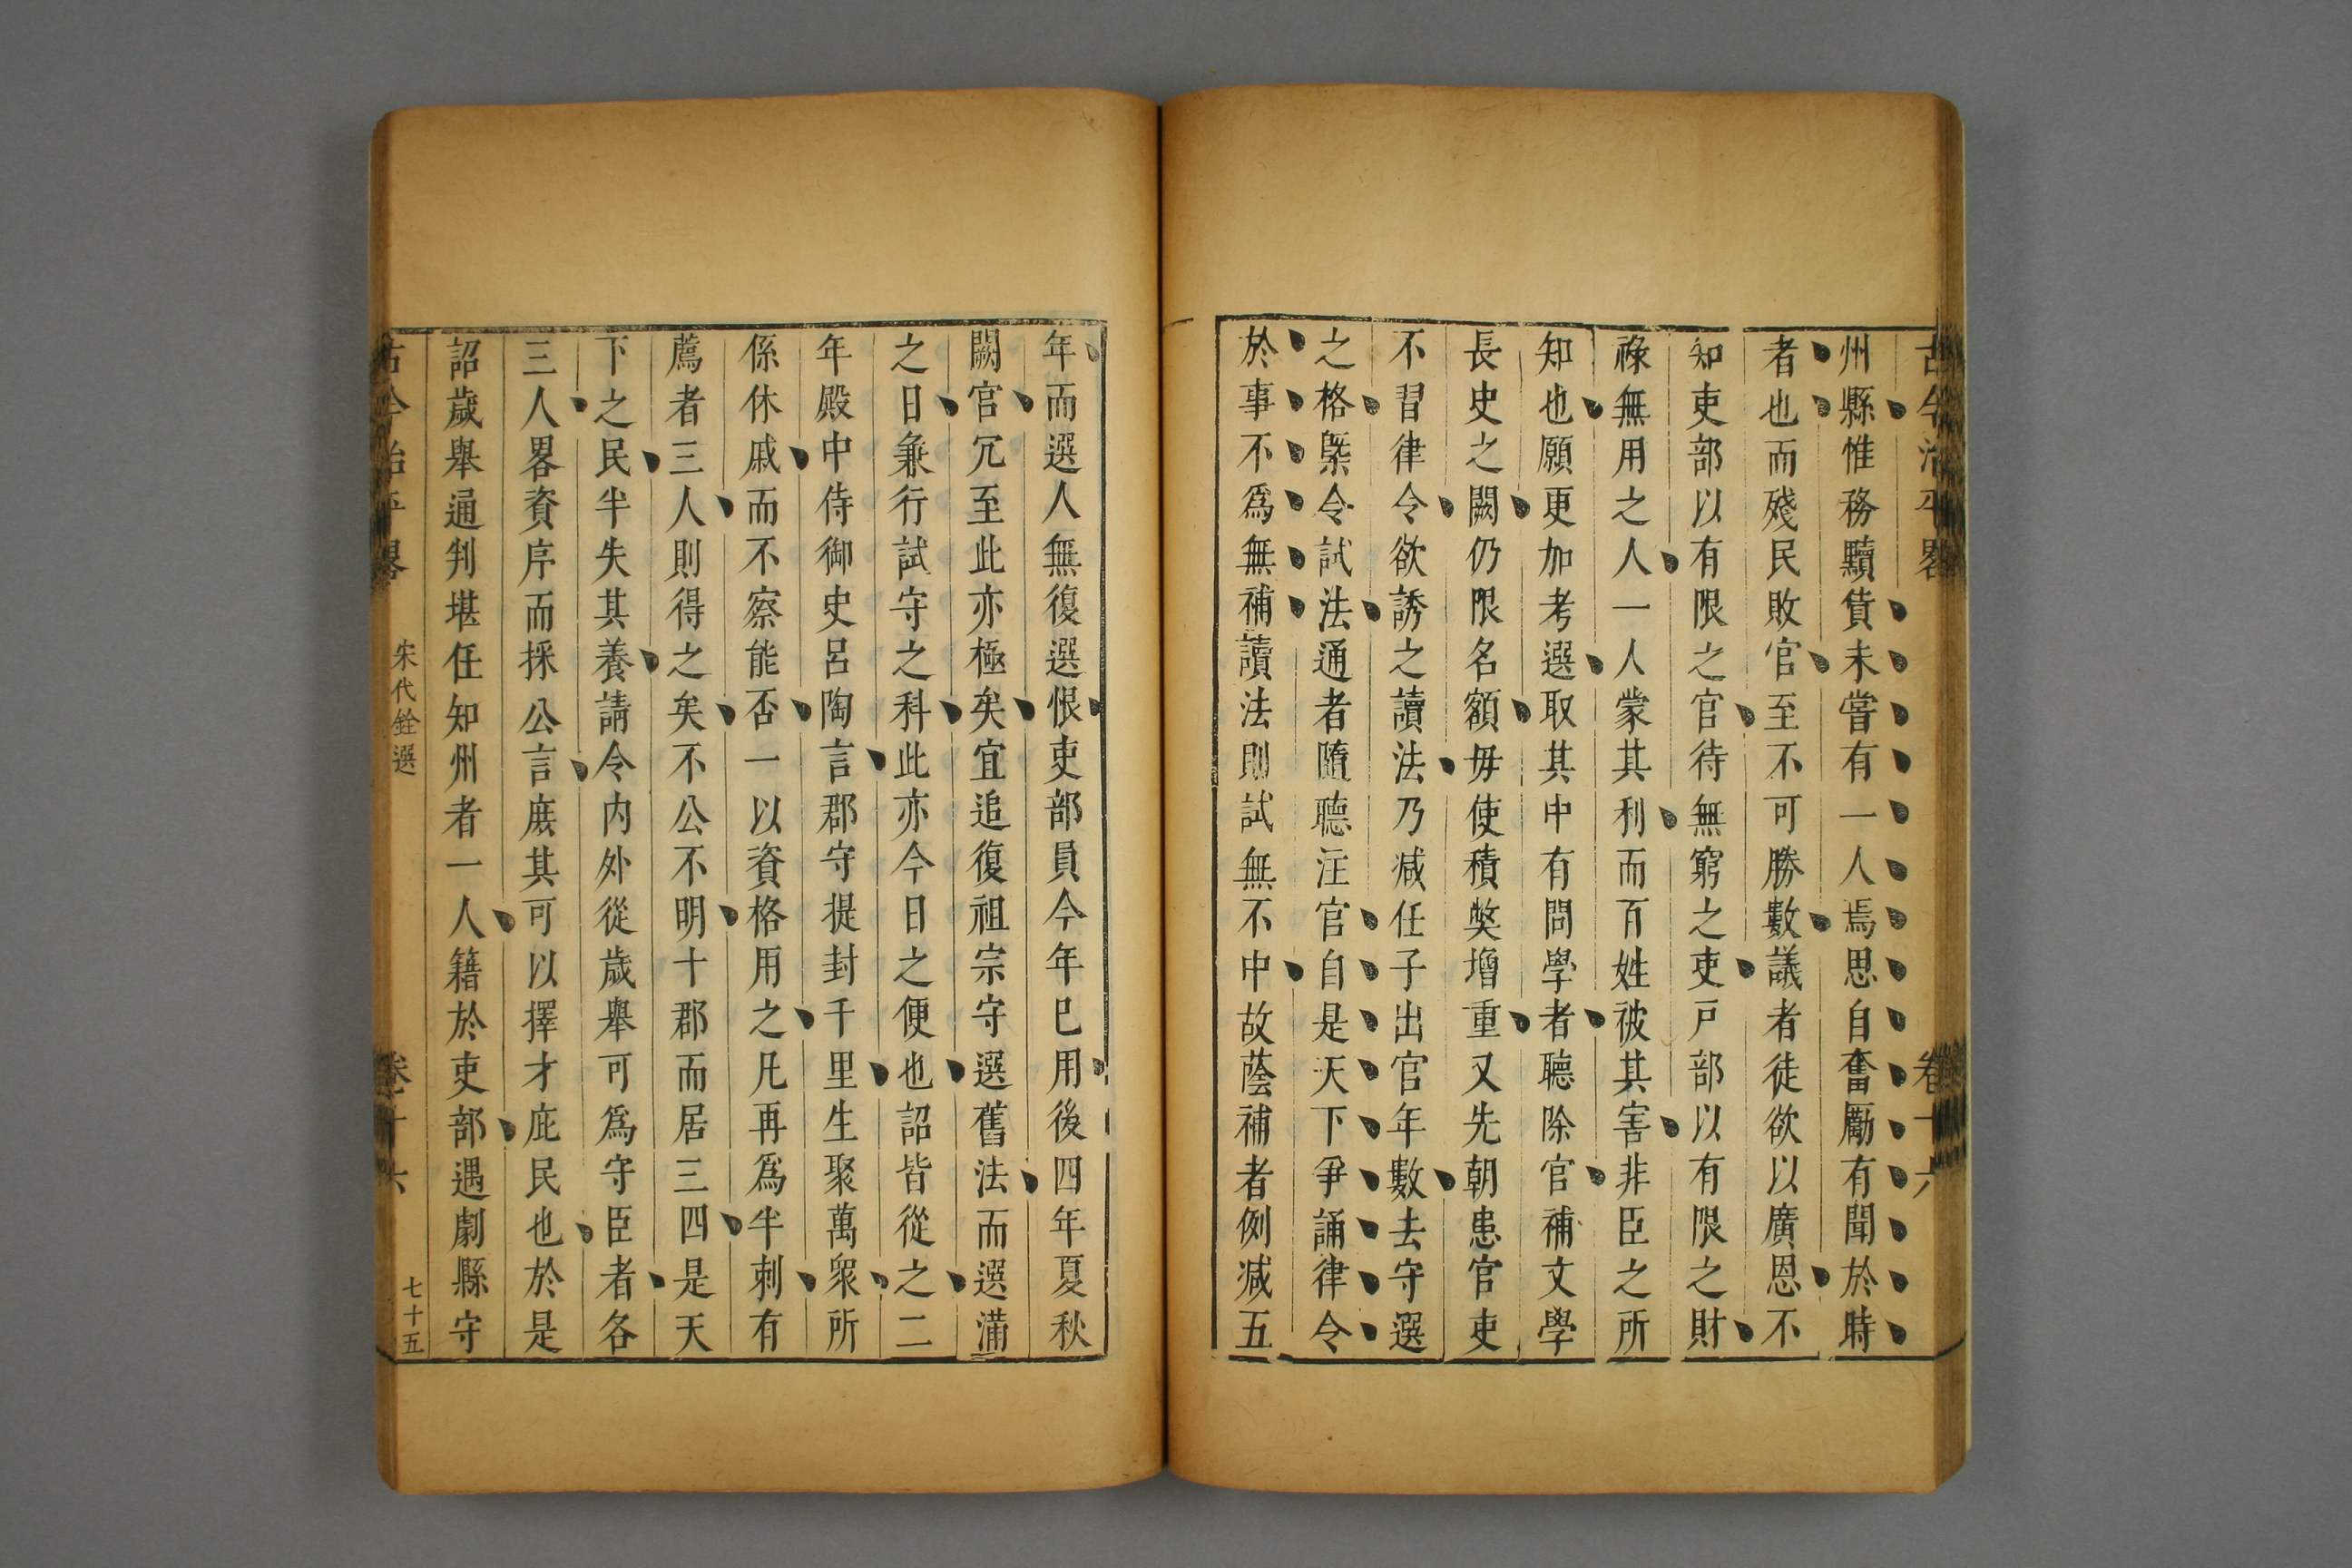 古今治平畧　卷十六
州縣惟務黷貨未嘗有一人焉思自奮勵有聞於時
者也而殘民敗官至不可勝數議者徒欲以廣恩不
知吏部以有限之官待無窮之吏戸部以有限之財
祿無用之人一人蒙其利而百姓被其害非臣之所
知也願更加考選取其中有問學者聽除官補文學
長史之闕仍限名額毋使積獘增重又先朝患官吏
不習律令欲誘之讀法乃减任子出官年數去守選
之格槩令試法通者隨聽注官自是天下爭誦律令
於事不為無補讀法則試無不中故蔭補者例减五
年而選人無復選恨吏部員今年已用後四年夏秋
闕官冗至此亦極矣宜追復祖宗守選舊法而選滿
之日兼行試守之科此亦今日之便也詔皆從之二
年殿中侍御史呂陶言郡守提封千里生聚萬衆所
係休戚而不察能否一以資格用之凡再為半刺有
薦者三人則得之矣不公不明十郡而居三四是天
下之民半失其養請令内外從歲舉可為守臣者各
三人畧資序而採公言庶其可以擇才庇民也於是
詔歲舉通判堪任知州者一人籍於吏部遇劇縣守
古今治平畧　宋代銓選　卷十六　七十五